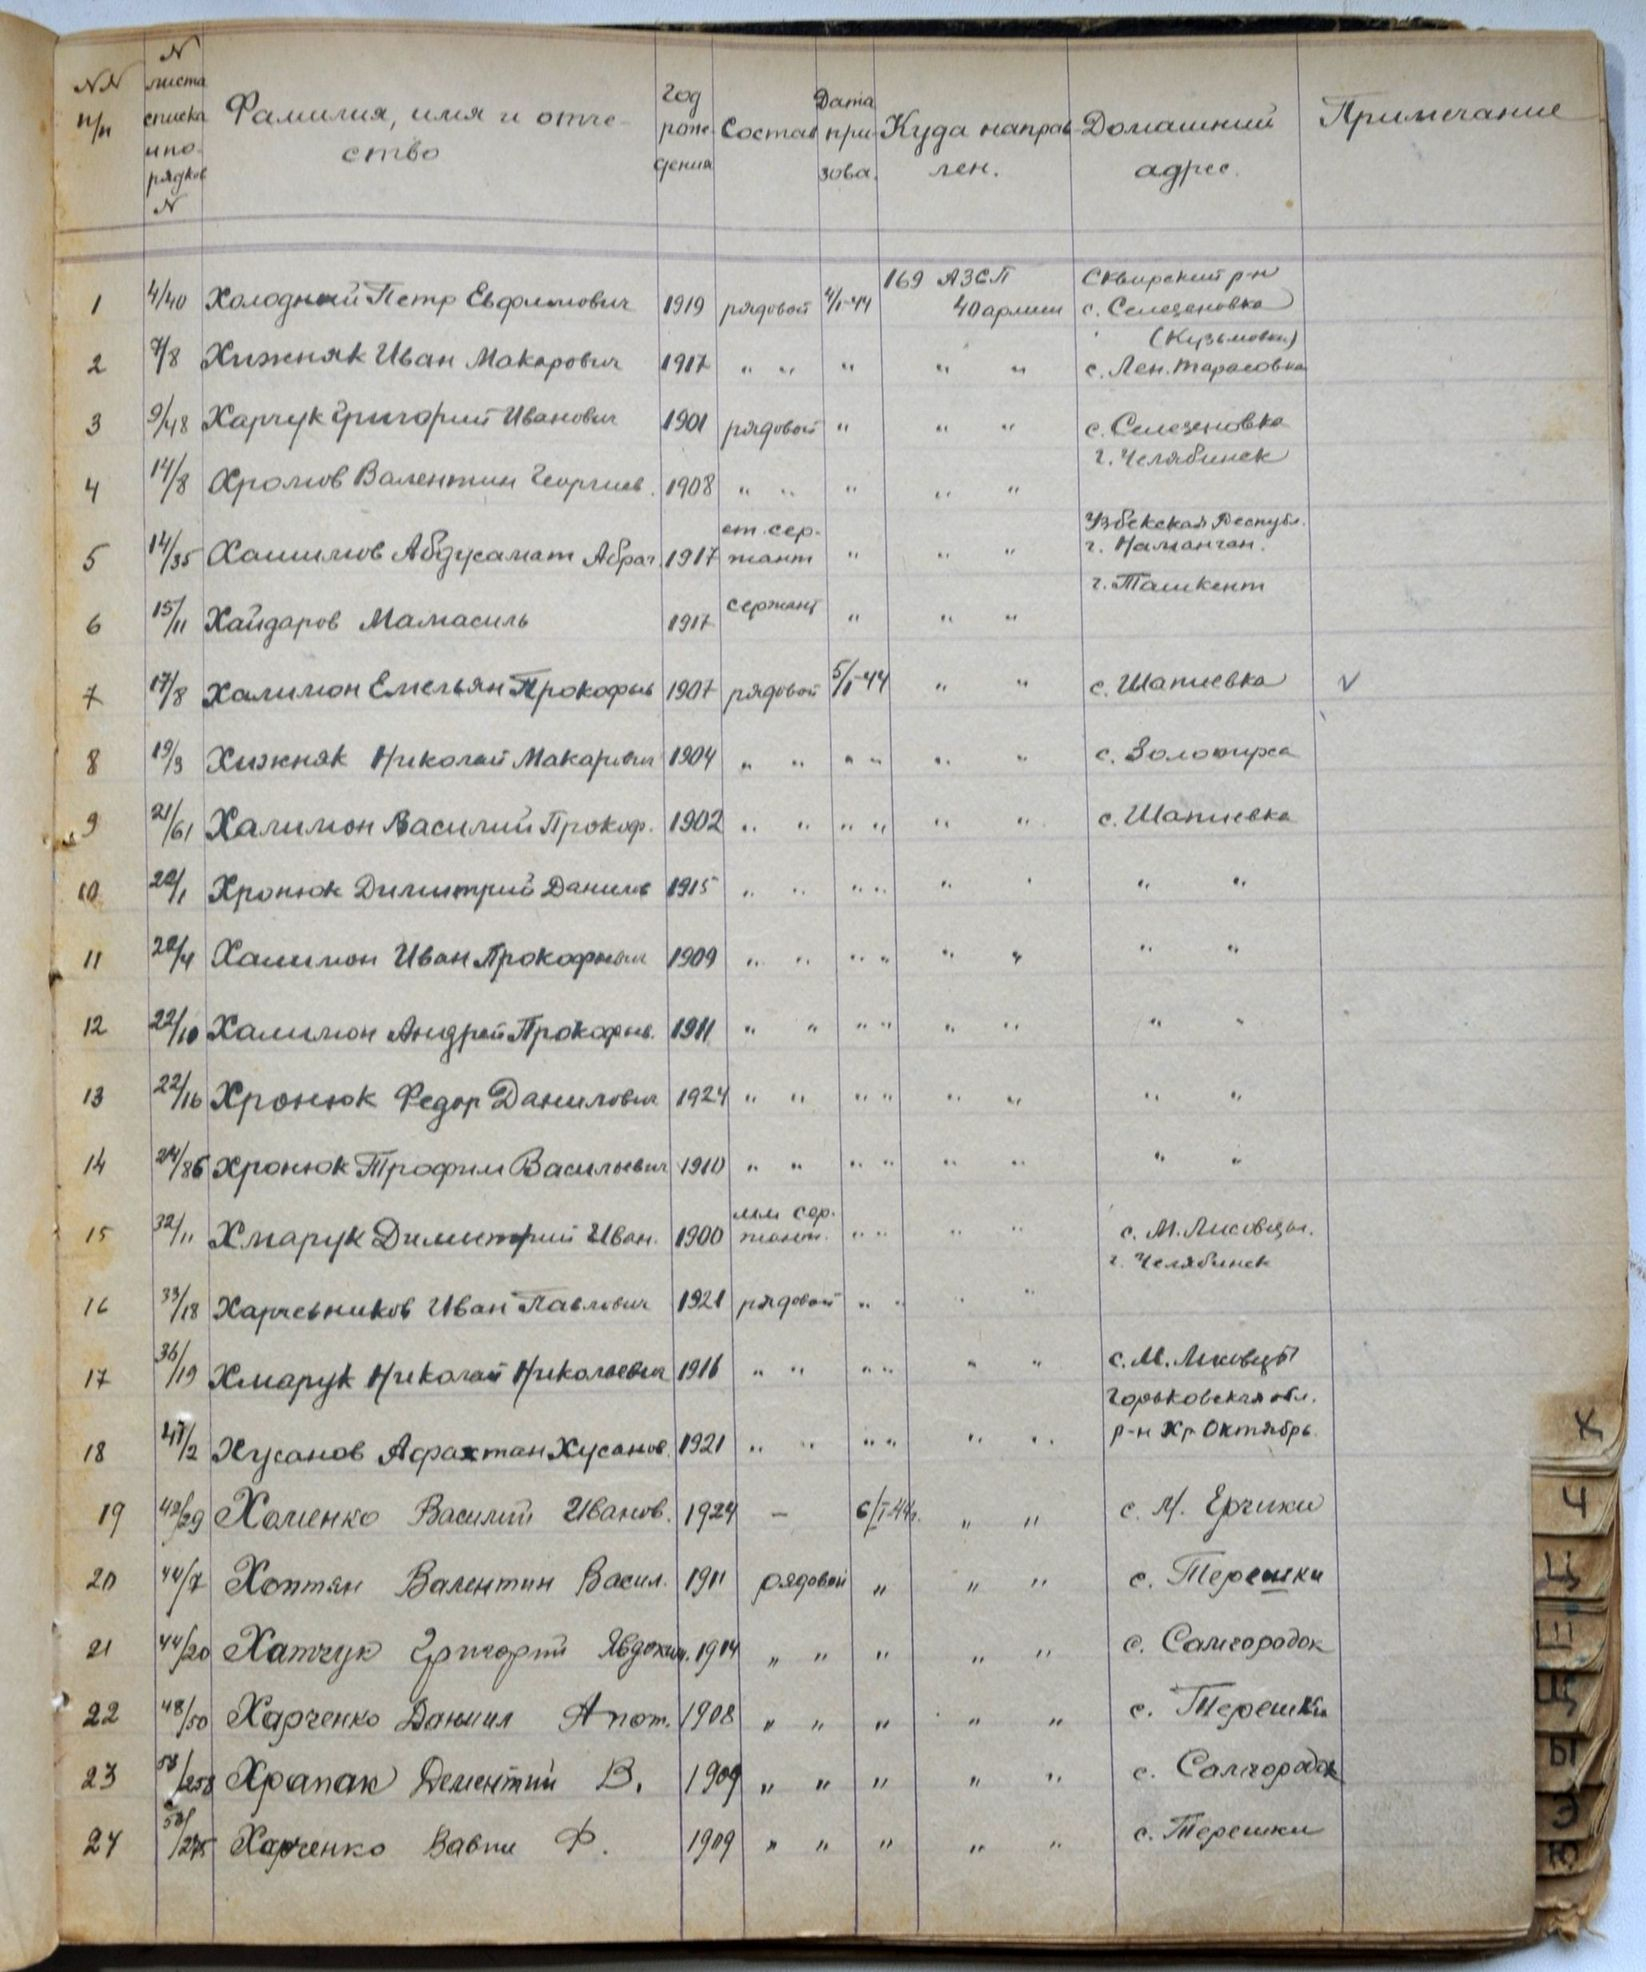 NN п/п | N листа списка и по-рядков N | Фамилия, имя и отче-ство | Год рож-дения | Состав | Дата при-зова. | Куда направ-лен. | Домашний адрес. | Примечание
1 4/40 Холодный Петр Евфимович 1919 рядовой 4/I-44 169 АЗСП 40 армии Сквирский р-н с. Селезеновка
2 7/8 Хижняк Иван Макарович 1917 " " " " " (Кузьмовка) с. Лен. Тарасовка
3 9/48 Харчук Григорий Иванович 1901 рядовой " " " с. Селезеновка
4 14/8 Хромов Валентин Георгиев. 1908 " " " " " г. Челябинск
5 14/35 Хашимов Абдусамат 1917 ст. сер-жант " " " Узбекская Республ. г. Наманган.
6 15/11 Хайдаров Мамасиль 1917 сержант " " " г. Ташкент
7 17/8 Халимон Емельян Прокофьев 1907 рядовой 5/I-44 " " с. Шапиевка V
8 19/3 Хижняк Николай Макарович 1904 " " " " " " с.
9 21/61 Халимон Василий Прокоф. 1902 " " " " " " с. Шапиевка
10 22/1 Хронюк Димитрий Данилов 1915 " " " " " " " "
11 22/4 Халимон Иван Прокофьевич 1909 " " " " " " " "
12 22/10 Халимон Андрей Прокофьев. 1911 " " " " " " " "
13 22/16 Хронюк Федор Данилович 1924 " " " " " " " "
14 24/86 Хронюк Трофим Васильевич 1910 " " " " " " " "
15 32/11 Хмарук Димитрий Иван. 1900 мл сер-жант. " " " " с. М. Лисовцы.
16 33/18 Харчевников Иван Павлович 1921 рядовой " " " " г. Челябинск
17 36/19 Хмарук Николай Николаевич 1916 " " " " " " с. М. Лисовцы
18 41/2 Хусанов Афахтан Хусанов. 1921 " " " " " " Горьковская обл. р-н Кр Октябрь.
19 42/29 Хоменко Василий Иванов. 1924 - 6/I-44г. " " с. М. Ерчики
20 44/7 Хоптян Валентин Васил. 1911 рядовой " " " с. Терешки
21 44/20 Хатчук Григорий Явдоким. 1904 " " " " " с. Самгородок
22 48/50 Харченко Даниил Апот. 1908 " " " " " с. Терешки
23 58/258 Храпак Дементий В. 1909 " " " " " с. Самгородок
24 58/275 Харченко Вавил Ф. 1909 " " " " " с. Терешки
Х
Ч
Ц
Ш
Щ
Ы
Э
Ю